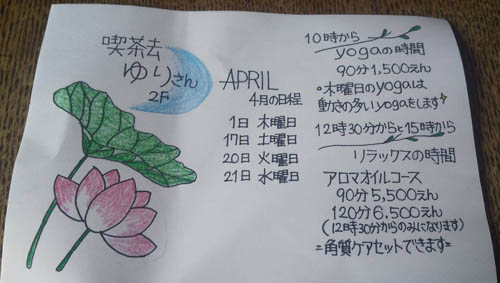 喫茶去
ゆりさん
2F
APRIL
4月の日程
1日 木曜日
17日 土曜日
20日 火曜日
21日 水曜日
10時から
yogaの時間
90分1,500えん
。木曜日のyogaは
動きの多いyogaをします
12時30分からと15時から
リラックスの時間
アロマオイルコース
90分5,500えん
120分6,500えん
(12時30分からのみになります)
=角質ケアセットできます=